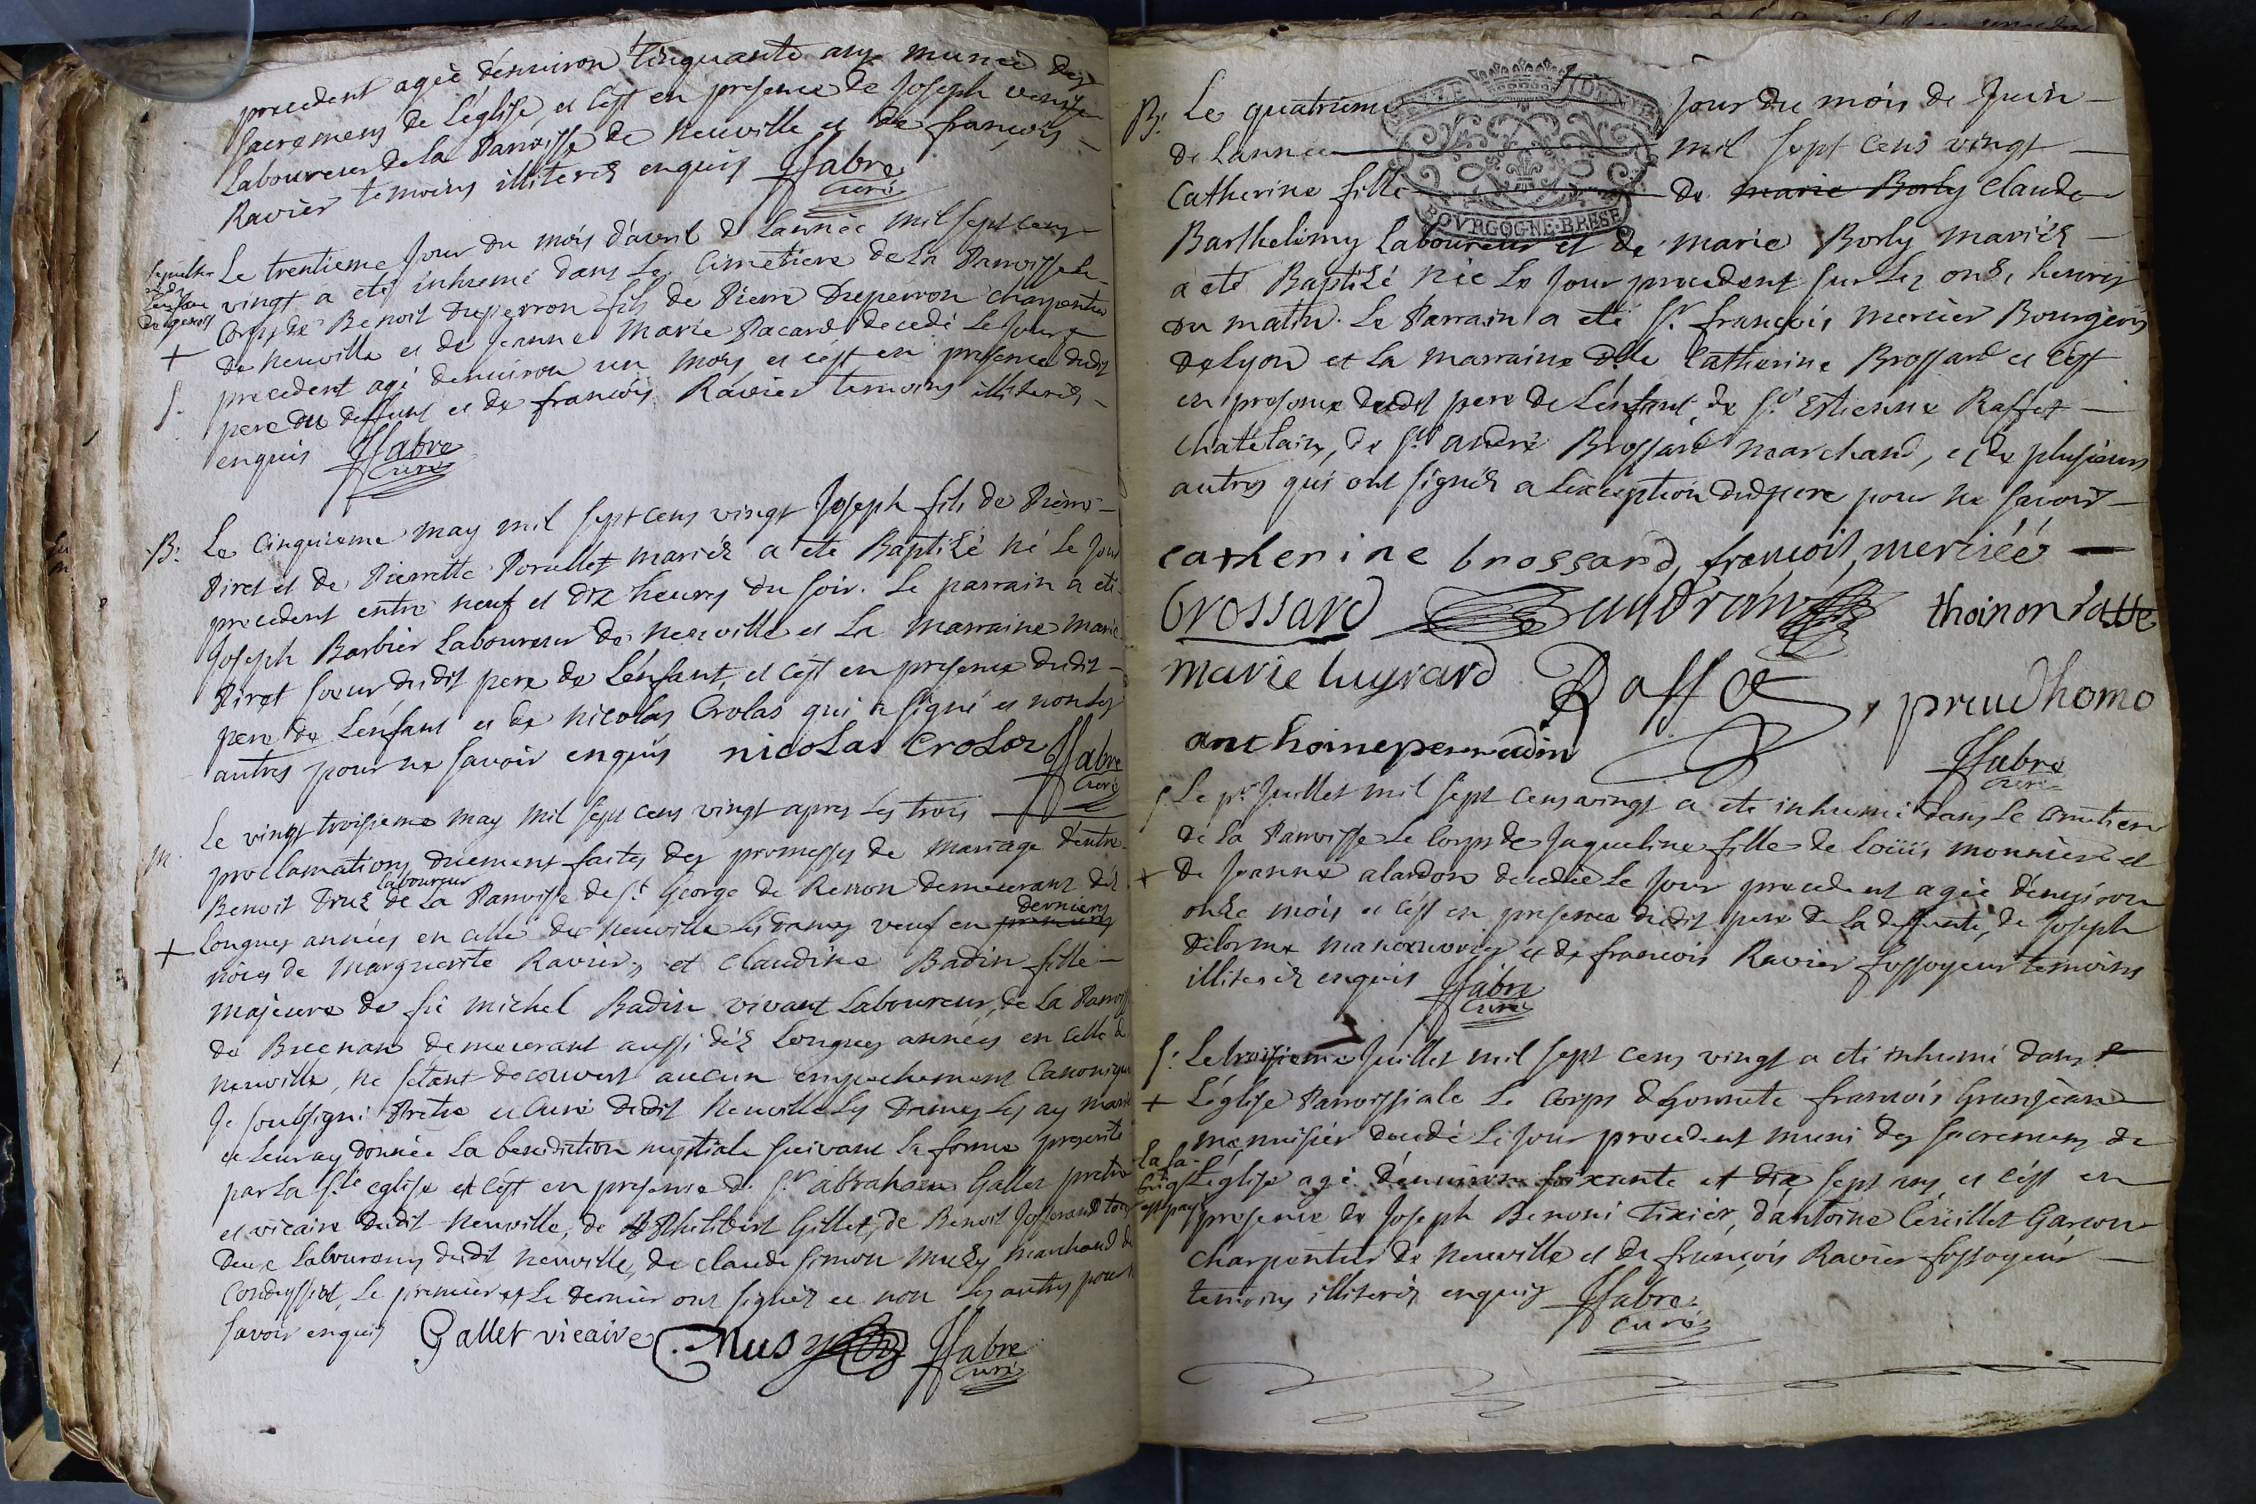 precedent agée denviron cinquante ans munie des
sacremens de L'église, et c'est en presence de Joseph
Laboureur de la Parroisse de Neuville et de françois
Ravier temoins illiterés enquis ffabre
curé
Le trentieme Jour du mois d'avril de L'année mil sept cens
vingt a eté inhumé dans Le Cimetiere de La Parroisse Le
Corps de Benoit Duperron fils de Pierre Duperron charpentier
de Neuville et de Jeanne Marie Pacard decedé Le Jour
+
precedent agé denviron un mois et c'est en presence dudit
S.
pere du deffunt et de françois Ravier temoins illiterés
enquis ffabre
curé
B: Le Cinquieme may mil sept cens vingt Joseph fils de Pierre
Piret et de Pierrette Porallet mariés a eté Baptisé né Le Jour
precedent entre neuf et dix heures du soir. Le parrain a eté
Joseph Barbier Laboureur de Neuville et La marraine marie
Piret soeur dudit pere de L'enfant, et c'est en presence dudit
pere de L'enfant et de Nicolas Crolas qui a signé et non Les
autres pour ne savoir enquis nicolas crolas ffabre
curé
Le vingt troisieme may mil sept cens vingt apres Les trois
M.
proclamations duement faites des promesses de mariage d'entre
Laboureur
Benoit Druz de La Parroisse de St George de Renon demeurant dés
derniers
+ Longues années en celle de Neuville Les Dames veuf en premiers
nôces de Marguerite Ravier, et Claudine Badin fille
majeure de fû michel Badin vivant Laboureur, de La Parroisse
de Buenan demeurant aussi dés Longues années en celle de
Neuville, ne s'etant decouvert aucun empechement Canonique
Je soussigné Prêtre et Curé dudit Neuville Les Dames Les ay marié
et Leur ay donnée La benediction nuptiale suivant La forme prescrite
par La Ste eglise et c'est en presence de Sr abraham Gallet pretre
et vicaire dudit Neuville, de Philibert Gillet, de Benoit Josserand tous
deux Laboureurs dudit Neuville, de Claude Simon Musy marchand de
Condeyssiat, Le premier et Le dernier ont signés et non Les autres pour
savoir enquis Gallet vicaire Musy ffabre
curé
B: Le quatrieme Jour du mois de Juin
de L'année mil sept cens vingt
Catherine fille de marie Borly Claude
SEIZE DENIERS
BOURGOGNE·BRESSE
Barthelemy Laboureur et de marie Borly mariés
a eté Baptisé née Le Jour precedent sur Les onze heures
du matin. Le Parrain a eté Sr françois Mercier Bourgeois
de Lyon et La marraine Dlle Catherine Brossard et c'est
en presence dudit pere de L'enfant de Sr Estienne Raffet
Chatelain, de Sr andré Brossard marchand, et de plusieurs
autres qui ont signés a L'exception dud pere pour ne savoir
catherine brossard, francois, merciée
brossard thoinon ratte
marie luyrard Raffet, preudhomo
anthoineperradin
ffabre
curé
S Le pr Juillet mil sept cens vingt a eté inhumé dans Le Cimetiere
de La Parroisse Le Corps de Jaqueline fille de Loüis monnier et
+ de Jeanne alardon decedée Le Jour precedent agée d'environ
onze mois et c'est en presence dudit pere de La deffunte, de Joseph
Delorme manoeuvrier et de francois Ravier fossoyeur temoins
illiterés enquis ffabre
curé
S: Le troisieme Juillet mil sept cens vingt a eté inhumé dans
+ L'église Parroissiale Le Corps d'honnete francois Granjean
menuisier decedé Le Jour precedent muni des sacremens de
L'église agé d'environ soixante et dix sept ans et c'est en
presence de Joseph Benoni Tixier, d'antoine Ceüillet Garcon
charpentier de Neuville et de françois Ravier fossoyeur
temoins illiterés enquis ffabre
curé